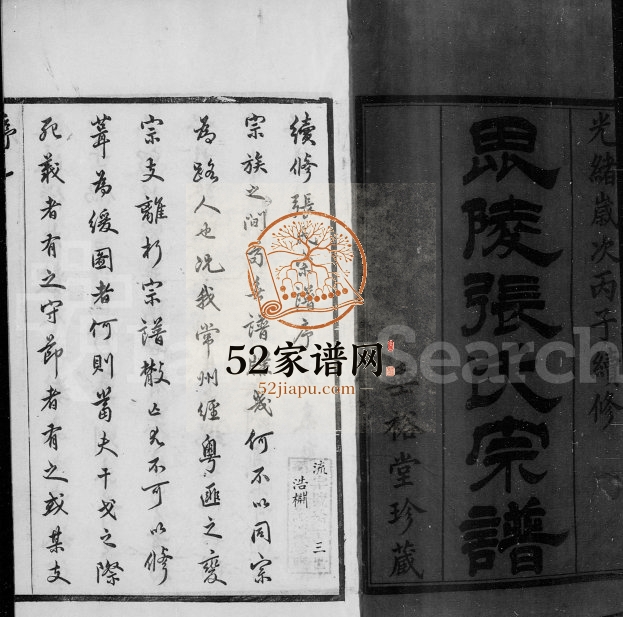 光緒歲次丙子續修
毘陵張氏宗譜
裕堂珍藏
續修張氏宗譜序
宗族之間苟無譜幾何不以同宗
為路人也况我常州經粵匪之變
宗支離析宗譜散亡尤不可以修
葺為緩圖者何則當夫干戈之際
死義者有之守節者有之或某支
序一
流
浩棚
三
52家谱网
52jiapu.com
Search